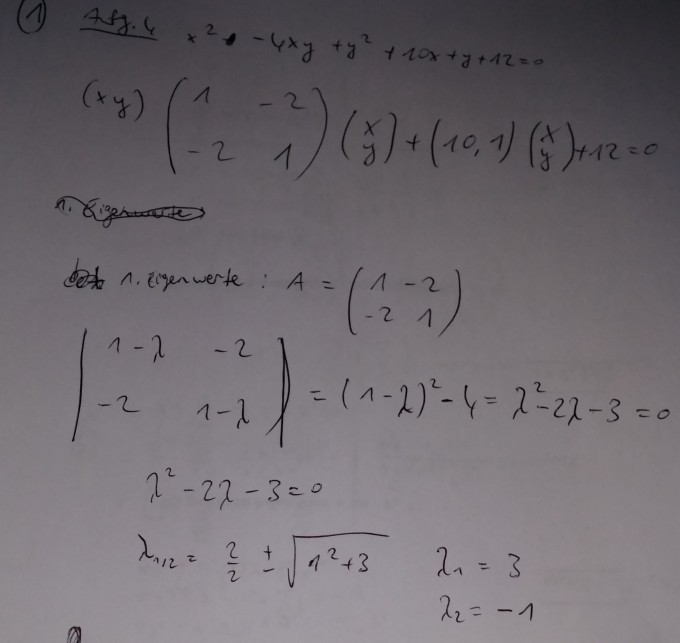 ① Afg. 4 x² - 4xy + y² + 10x + y + 12 = 0
(x y) ( 1 -2 ) ( x ) + (10, 1) ( x ) + 12 = 0
( -2 1 ) ( y ) ( y )
1. Eigenwerte
1. Eigenwerte : A = ( 1 -2 )
( -2 1 )
| 1-λ -2 |
| -2 1-λ | = (1-λ)² - 4 = λ² - 2λ - 3 = 0
λ² - 2λ - 3 = 0
λ1/2 = 2/2 ± √(1² + 3) λ₁ = 3
λ₂ = -1